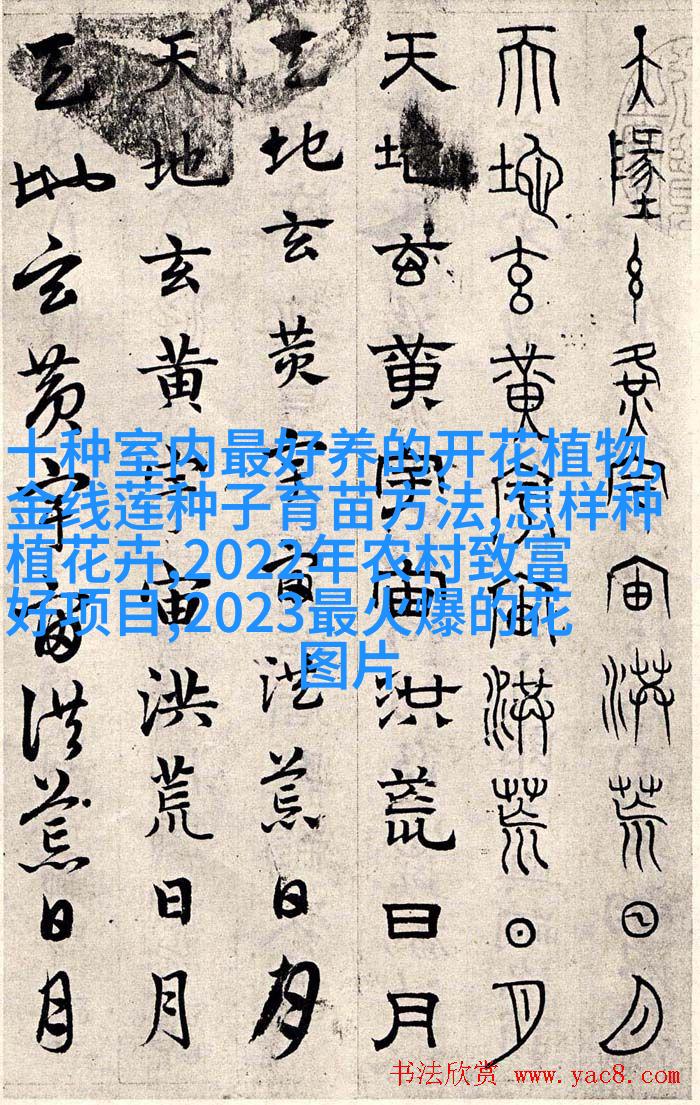 天墬玄黄宇宙洪荒日月
天地玄黄宇宙洪荒日月
天地玄黄宇宙洪荒日月
天地玄黄宇宙洪荒日月
天地玄黄宇宙洪荒日月
天地玄黄宇宙洪荒日月
十种室内最好养的开花植物,
金线莲种子育苗方法,怎样种
植花卉,2022年农村致富
好项目,2023最火爆的花
图片
书法欣赏 www.yac8.com